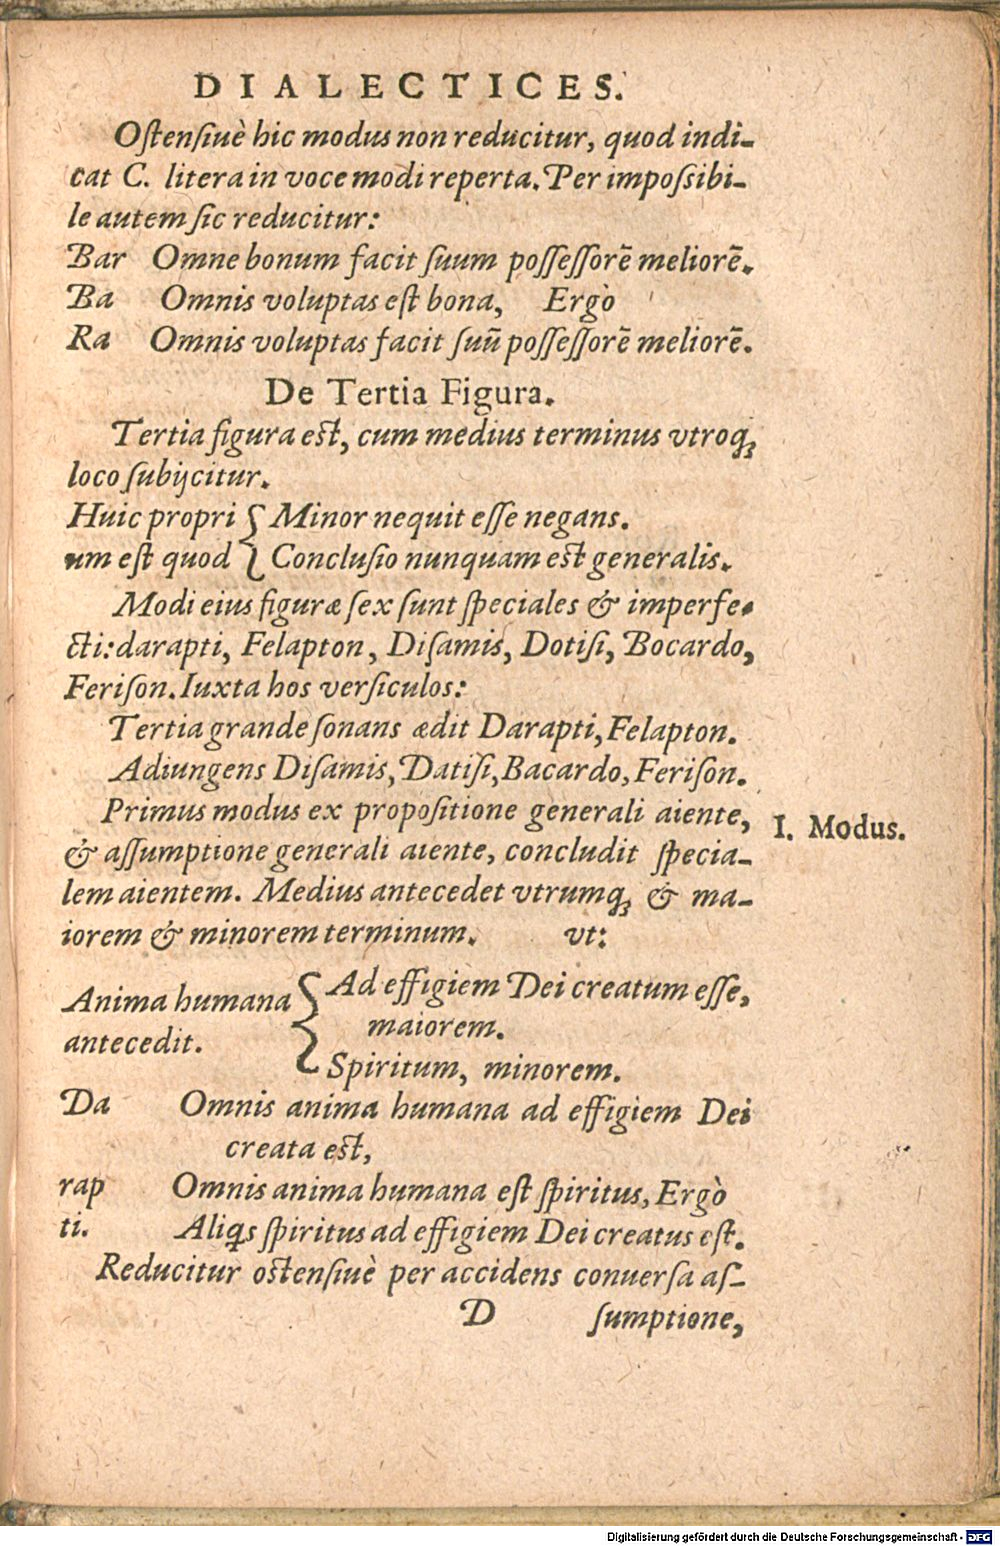 DIALECTICES.
Oſtenſiuè hic modus non reducitur, quod indi-
cat C. litera in voce modi reperta. Per impoſsibi-
le autem ſic reducitur:
Bar Omne bonum facit ſuum poſſeſſorē meliorē.
Ba Omnis voluptas eſt bona, Ergò
Ra Omnis voluptas facit ſuū poſſeſſorē meliorē.
De Tertia Figura.
Tertia figura eſt, cum medius terminus vtroq;
loco ſubijcitur.
Huic propri { Minor nequit eſſe negans.
um eſt quod { Concluſio nunquam eſt generalis.
Modi eius figuræ ſex ſunt ſpeciales & imperfe-
cti: darapti, Felapton, Diſamis, Dotiſi, Bocardo,
Feriſon. Iuxta hos verſiculos:
Tertia grande ſonans ædit Darapti, Felapton.
Adiungens Diſamis, Datiſi, Bacardo, Feriſon.
Primus modus ex propoſitione generali aiente,
I. Modus.
& aſſumptione generali aiente, concludit ſpecia-
lem aientem. Medius antecedet vtrumq; & ma-
iorem & minorem terminum. vt:
Anima humana { Ad effigiem Dei creatum eſſe,
maiorem.
antecedit.
Spiritum, minorem.
Da Omnis anima humana ad effigiem Dei
creata eſt,
rap Omnis anima humana eſt ſpiritus, Ergò
ti. Aliq́s ſpiritus ad effigiem Dei creatus eſt.
Reducitur oſtenſiuè per accidens conuerſa aſ-
D ſumptione,
Digitalisierung gefördert durch die Deutsche Forschungsgemeinschaft - DFG